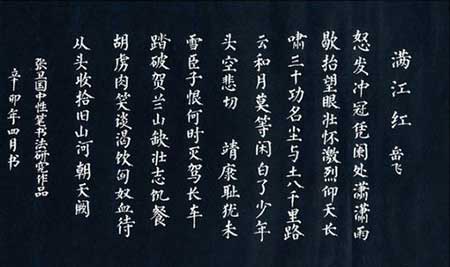 满江红 岳飞
怒发冲冠凭阑处潇潇雨
歇抬望眼壮怀激烈仰天长
啸三十功名尘与土八千里路
云和月莫等闲白了少年
头空悲切 靖康耻犹未
雪臣子恨何时灭驾长车
踏破贺兰山缺壮志饥餐
胡虏肉笑谈渴饮匈奴血待
从头收拾旧山河朝天阙
张卫国中性笔书法研究作品
辛卯年四月书